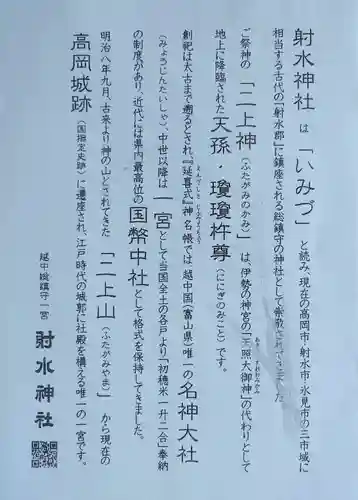 射水神社 は 「いみづ」 と読み、現在の高岡市・射水市・氷見市の三市域に
相当する古代の「射水郡」に鎮座される総鎮守の神社として崇敬されてきました。
ご祭神の 「二上神 (ふたがみのかみ)」 は、伊勢の神宮の「天照大御神」の代わりとして
地上に降臨された 天孫・瓊瓊杵尊 (ににぎのみこと) です。
創祀は太古まで遡るとされ『延喜式』神名帳では 越中国(富山県)唯一の 名神大社
(みょうじんたいしゃ)、中世以降は 一宮 として当国全土の各戸より「初穂米一升二合」奉納
の制度があり、近代には県内最高位の 国幣中社 として格式を保持してきました。
明治八年九月、古来より神の山とされてきた 「二上山 (ふたがみやま)」 から現在の
高岡城跡 (国指定史跡) に遷座され、江戸時代の城郭に社殿を構える唯一の一宮です。
越中総鎮守一宮 射水神社